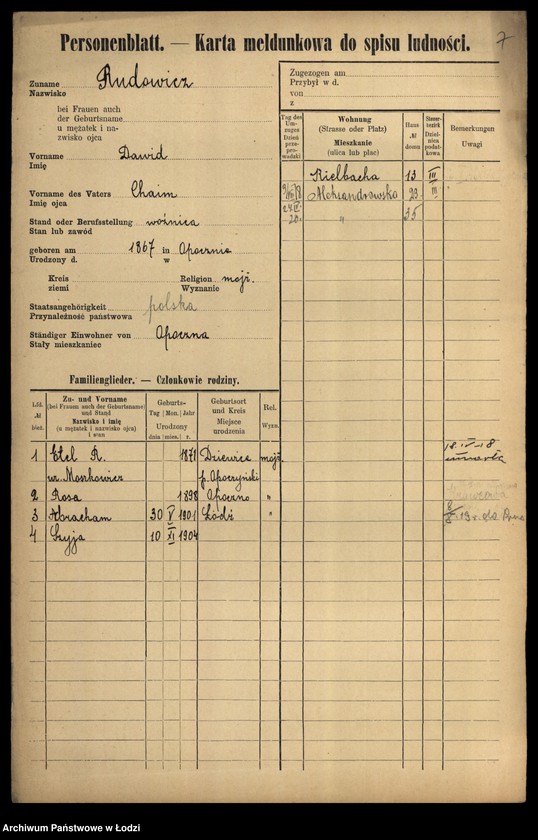 Personenblatt. — Karta meldunkowa do spisu ludności.
7
Zuname Rudowicz
Nazwisko
bei Frauen auch
der Geburtsname
u mężatek i na-
zwisko ojca
Vorname Dawid
Imię
Vorname des Vaters Chaim
Imię ojca
Stand oder Berufsstellung woźnica
Stan lub zawód
geboren am 1867 in Opocznie
Urodzony d. w
Kreis Religion mojż.
ziemi Wyznanie
Staatsangehörigkeit polska
Przynależność państwowa
Ständiger Einwohner von Opoczna
Stały mieszkaniec
Zugezogen am
Przybył w d.
von
z
Tag des Um-zuges Dzień prze-prowadzki
Wohnung
(Strasse oder Platz)
Mieszkanie
(ulica lub plac)
Haus № domu
Steuer-bezirk Dziel-nica podat-kowa
Bemerkungen
Uwagi
Kielbacha 13 III
Aleksandrowska 23 III
20. " 35
Familienglieder. — Członkowie rodziny.
Lfd. № bież.
Zu- und Vorname
(bei Frauen auch der Geburtsname)
und Stand
Nazwisko i imię
(u mężatek i nazwisko ojca)
i stan
Geburts-
Tag Mon. Jahr
Urodzony
dnia mies. r.
Geburtsort
und Kreis
Miejsce
urodzenia
Rel.
Wyzn.
1 Etel R. 1871 Dziewica mojż. 18.IV-18
ur. Moszkowicz p. Opoczyński umarła
2 Rosa 1898 Opoczno "
3 Abracham 30 V 1901 Łódź "
4 Szyja 10 XI 1904
Archiwum Państwowe w Łodzi